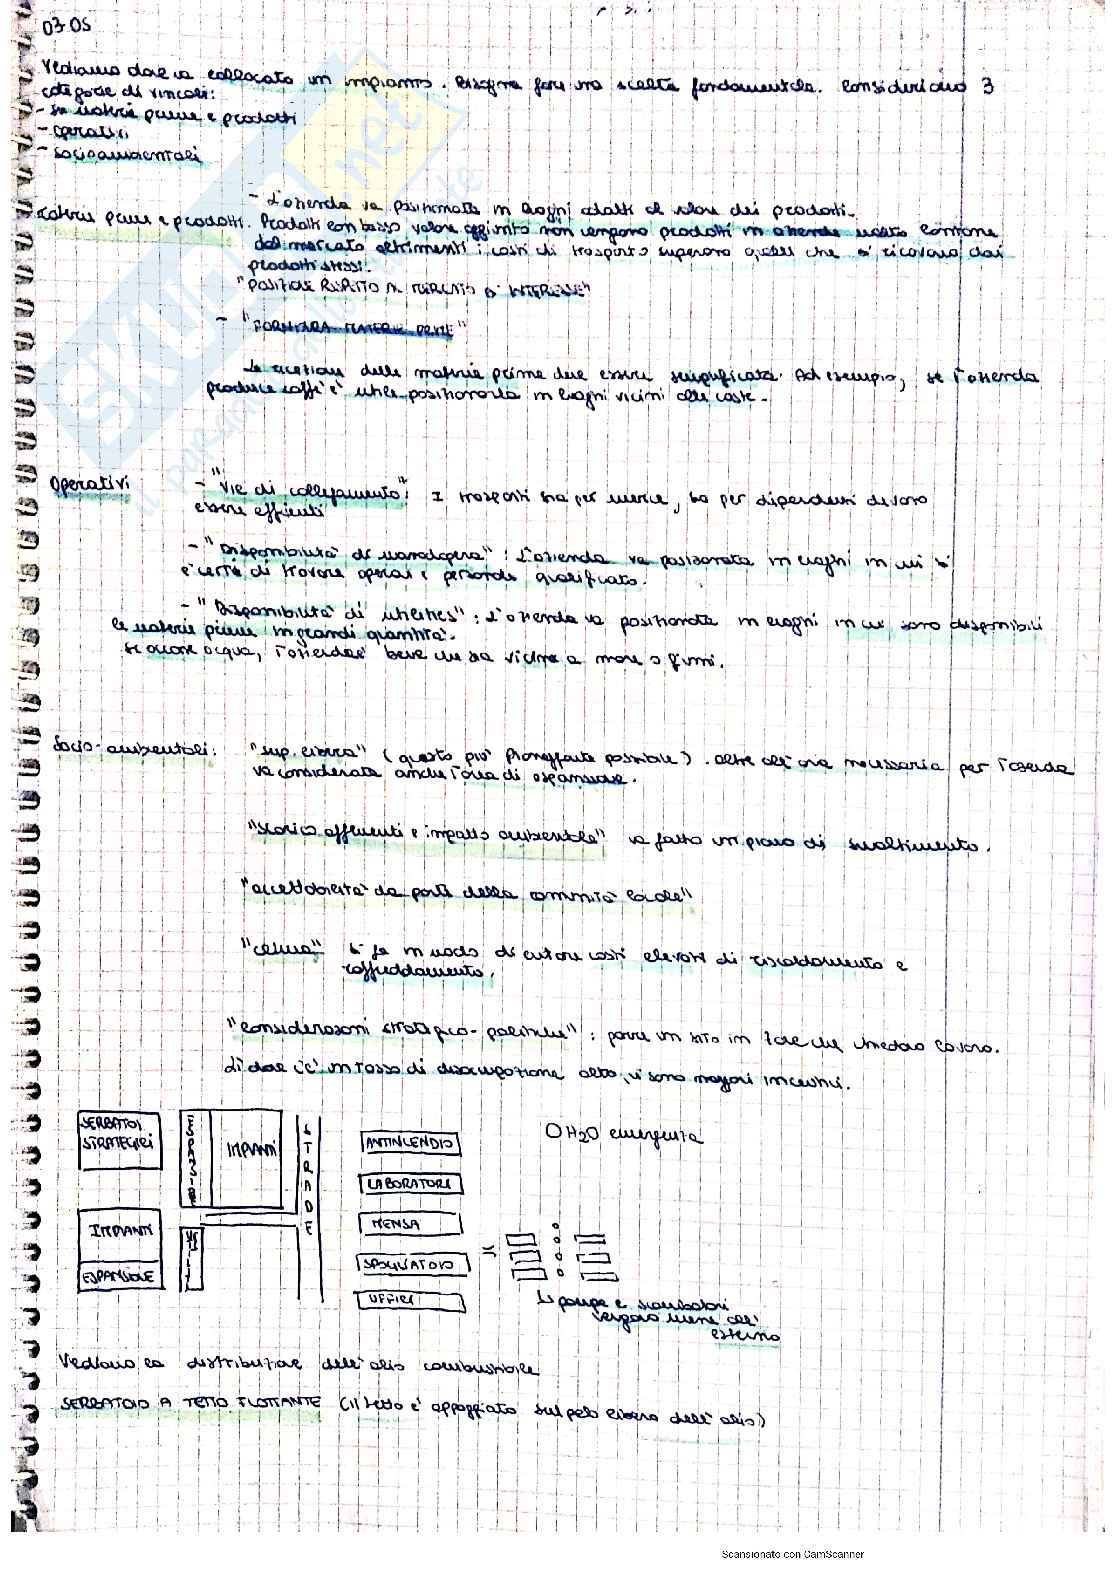 03-05
Vediamo dove va collocato un impianto. Bisogna fare una scelta fondamentale. Consideriamo 3
categorie di vincoli:
- su materie prime e prodotti
- operativi
- socioambientali
- L'azienda va posizionata in luoghi adatti al valore dei prodotti.
Materie prime e prodotti. Prodotti con basso valore aggiunto non vengono prodotti in aziende molto lontane
dal mercato altrimenti i costi di trasporto superano quelli che si ricavano dai
prodotti stessi.
"POSIZIONE RISPETTO AL MERCATO DI INTERESSE"
- "FORNITURA MATERIE PRIME"
La ricezione delle materie prime deve essere semplificata. Ad esempio, se l'azienda
produce caffè è utile posizionarla in luoghi vicini alle coste.
Operativi
- "Vie di collegamento": I trasporti sia per merce, sia per dipendenti devono
essere efficienti
- "Disponibilità di manodopera": L'azienda va posizionata in luoghi in cui si
è certi di trovare operai e personale qualificato.
- "Disponibilità di utilities": L'azienda va posizionata in luoghi in cui sono disponibili
le materie prime in grandi quantità.
Se occorre acqua, l'azienda è bene che sia vicina a mare o fiumi.
Socio-ambientali:
"sup. libera" (quanto più pianeggiante possibile). Oltre all'area necessaria per l'azienda
va considerata anche l'area di espansione.
"scarico effluenti e impatto ambientale" va fatto un piano di smaltimento.
"accettabilità da parte della comunità locale"
"clima" si fa in modo di evitare costi elevati di riscaldamento e
raffreddamento.
"considerazioni strategico-politiche": porre un sito in zone che chiedono lavoro.
Lì dove c'è un tasso di disoccupazione alto, vi sono maggiori incentivi.
SERBATOI
STRATEGICI
ESPANSIONE
IMPIANTI
STRADE
ANTINCENDIO
OH2O emergenza
LABORATORI
IMPIANTI
MENSA
ESPANSIONE
SPOGLIATOIO
UFFICI
Le pompe e scambiatori
vengono messe all'
esterno
Vediamo la distribuzione dell'olio combustibile
SERBATOIO A TETTO FLOTTANTE (il tetto è appoggiato sul pelo libero dell'olio)
Scansionato con CamScanner